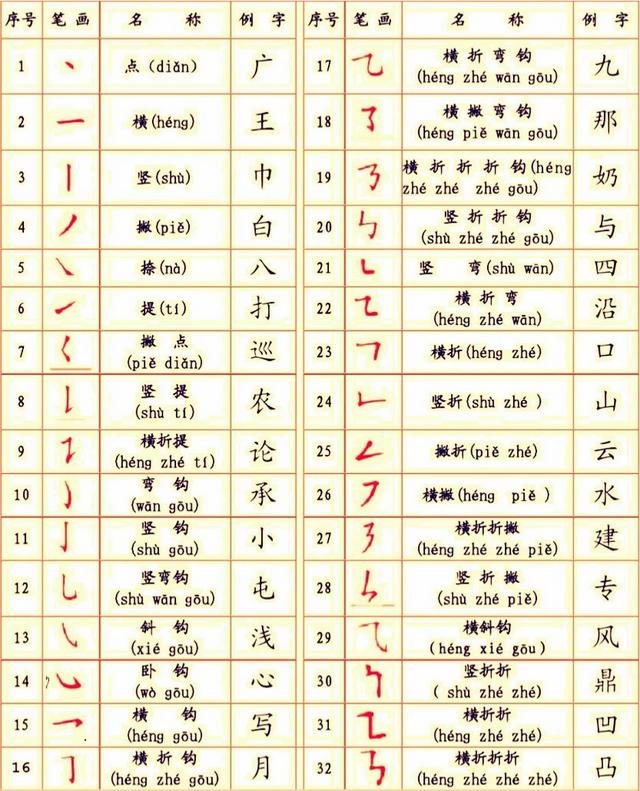 序号 笔画 名 称 例 字
1 丶 点（diǎn） 广
2 一 横(héng) 王
3 丨 竖(shù) 巾
4 丿 撇(piě) 白
5 ㇏ 捺(nà) 八
6 ㇀ 提(tí) 打
7 ㇛ 撇 点 巡
(piě diǎn)
8 ㇙ 竖 提 农
(shù tí)
9 ㇊ 横折提 论
(héng zhé tí)
10 ㇁ 弯 钩 承
(wān gōu)
11 亅 竖 钩 小
(shù gōu)
12 ㇟ 竖弯钩 屯
(shù wān gōu)
13 ㇂ 斜 钩 浅
(xié gōu)
14 ㇃ 卧 钩 心
(wò gōu)
15 ㇖ 横 钩 写
(héng gōu)
16 ㇆ 横 折 钩 月
(héng zhé gōu)
序号 笔画 名 称 例 字
17 ㇈ 横 折 弯 钩 九
(héng zhé wān gōu)
18 ㇌ 横 撇 弯 钩 那
(héng piě wān gōu)
19 ㇡ 横 折 折 折 钩(héng 奶
zhé zhé zhé gōu)
20 ㇉ 竖 折 折 钩 与
(shù zhé zhé gōu)
21 ㇄ 竖 弯(shù wān) 四
22 ㇍ 横 折 弯 沿
(héng zhé wān)
23 ㇕ 横折(héng zhé) 口
24 ㇗ 竖折(shù zhé ) 山
25 ㇜ 撇折(piě zhé) 云
26 ㇇ 横撇(héng piě ) 水
27 ㇋ 横折折撇 建
(héng zhé zhé piě)
28 ㇞ 竖 折 撇 专
(shù zhé piě)
29 ⺄ 横斜钩 风
(héng xié gōu)
30 ㇞ 竖折折 鼎
( shù zhé zhé)
31 ㇅ 横折折 凹
(héng zhé zhé)
32 ㇎ 横折折折 凸
(héng zhé zhé zhé)